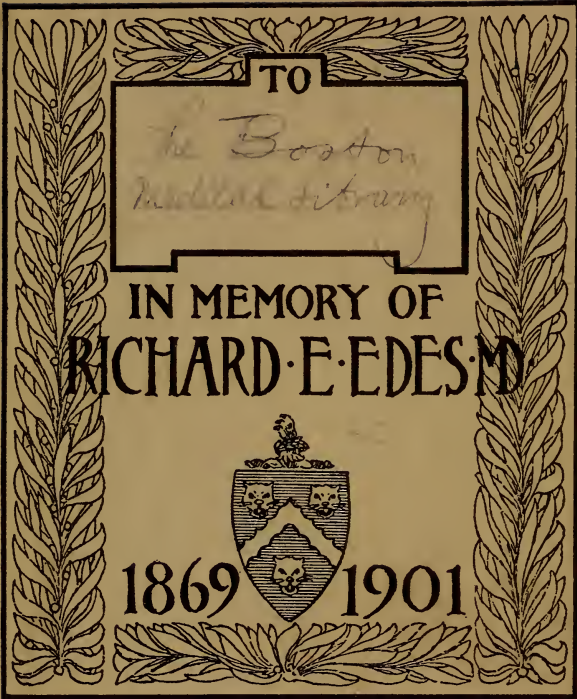 TO
The Boston
Medical Library
IN MEMORY OF
RICHARD·E·EDES·MD·
1869 1901